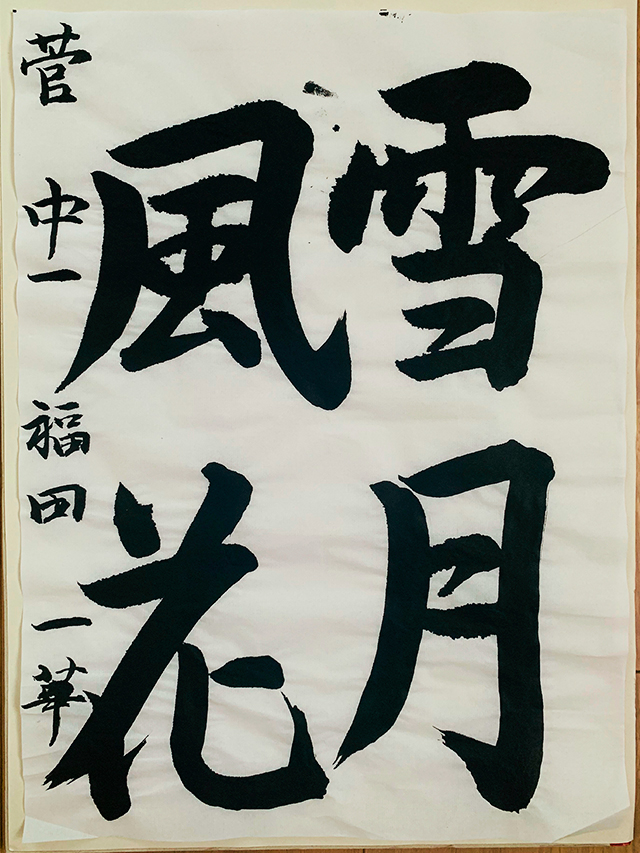 雪月
風花
菅 中一 福田 一華